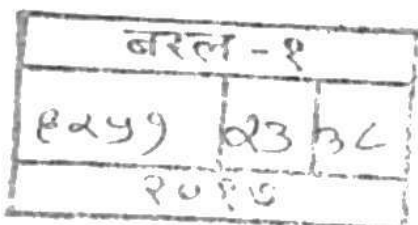 बरल - १
९२५१ २३ ३८
२०१७